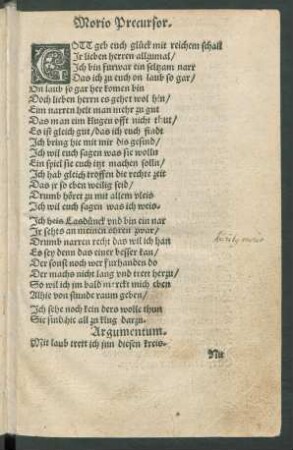 Morio Precursor.
GOTT geb euch glück mit reichem schall
Ir lieben herren allzumal/
Ich bin fürwar ein selzam narr
Das ich zu euch on laub so gar/
On laub so gar her komen bin
Doch lieben herrn es gehet wol hin/
Eim narren helt man mehr zu gut
Das man eim klugen offt nicht thut/
Es ist gleich gut/das ich euch findt
Ich bring hie mit mir dis gesind/
Ich wil euch sagen was sie wolln
Ein spiel sie euch itzt machen solln/
Ich hab gleich troffen die rechte zeit
Das je so eben weilig seid/
Drumb höret zu mit allem vleis
Ich wil euch sagen was ich weis.
Ich heis Lasdünck vnd bin ein nar
Ir sehts an meinen ohren zwar/
Drumb narren recht das wil ich han
Es sey denn das einer besser kan/
Der sonst noch wer furhanden do
Der machs nicht lang vnd trett herzu/
So wil ich im bald m rckt mich eben
Alhie von stunde raum geben/
Ich sehe noch kein ders wolle thun
Sie sind hie all zu klug darzu.
Argumentum.
Mit laub trett ich jnn diesen kreis.
Nu